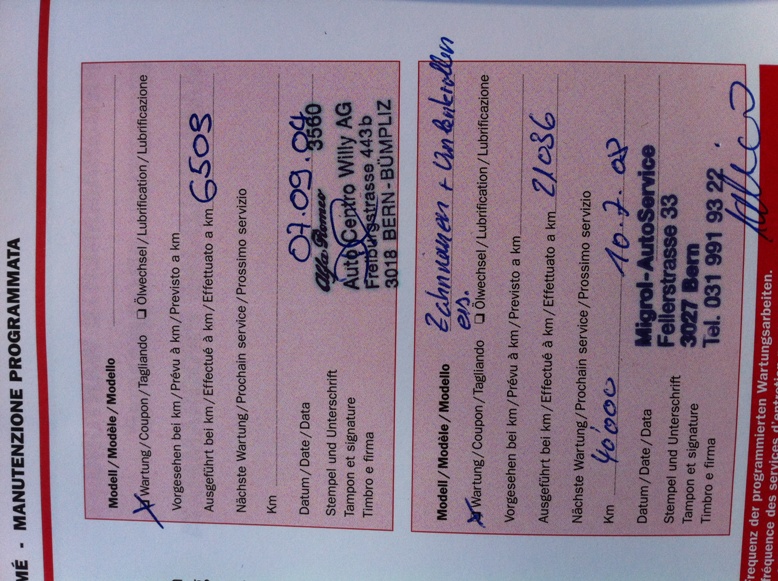 MÉ - MANUTENZIONE PROGRAMMATA
Modell / Modèle / Modello
Wartung / Coupon / Tagliando ❑ Ölwechsel / Lubrification / Lubrificazione
Vorgesehen bei km / Prévu à km / Previsto a km
Ausgeführt bei km / Effectué à km / Effettuato a km 6503
Nächste Wartung / Prochain service / Prossimo servizio
Km
Datum / Date / Data 07.09.04
Stempel und Unterschrift
Tampon et signature
Timbro e firma
Alfa Romeo 3560
Auto Centro Willy AG
Freiburgstrasse 443b
3018 BERN-BÜMPLIZ
Modell / Modèle / Modello Zahnriemen + Umlenkrollen
ers.
Wartung / Coupon / Tagliando ❑ Ölwechsel / Lubrification / Lubrificazione
Vorgesehen bei km / Prévu à km / Previsto a km
Ausgeführt bei km / Effectué à km / Effettuato a km 21036
Nächste Wartung / Prochain service / Prossimo servizio
Km 40'000
Datum / Date / Data 10.7.08
Stempel und Unterschrift
Tampon et signature
Timbro e firma
Migrol-AutoService
Fellerstrasse 33
3027 Bern
Tel. 031 991 93 22
requenz der programmierten Wartungsarbeiten.
réquence des services d'entretien